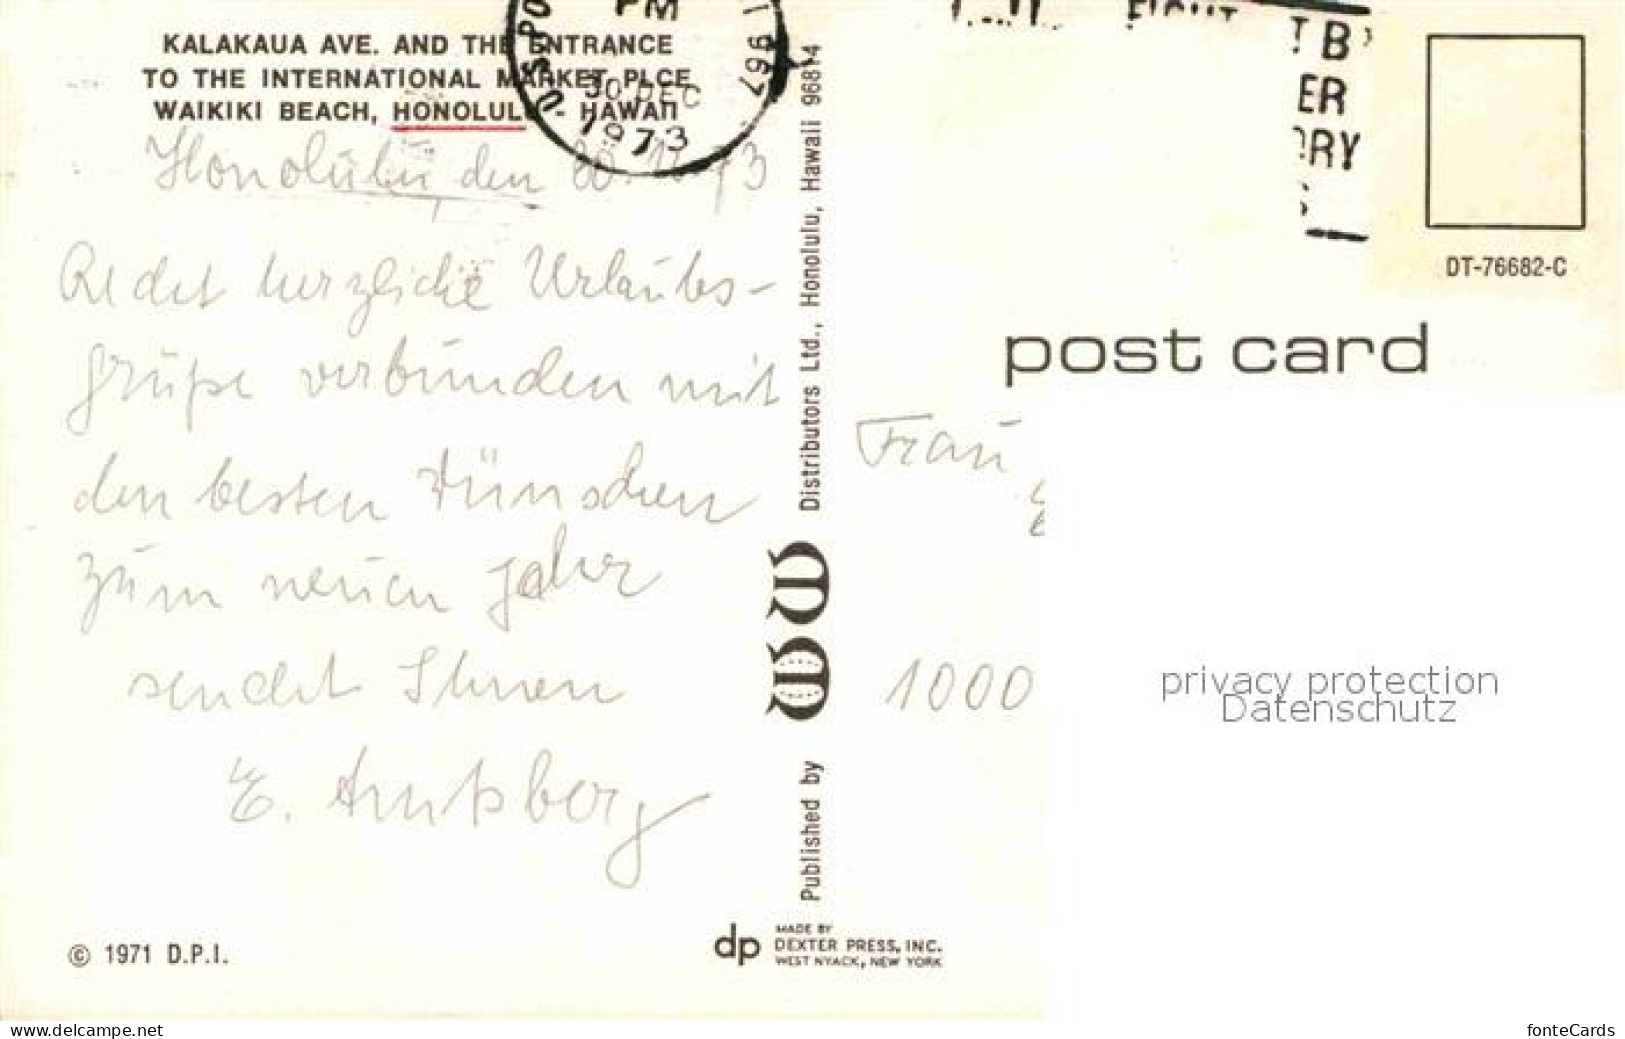 KALAKAUA AVE. AND THE ENTRANCE
TO THE INTERNATIONAL MARKET PLCE
WAIKIKI BEACH, HONOLULU - HAWAII
PM
30 DEC
1973
Honolulu den 30.12.73
herzliche Urlaubs-
grüße verbunden mit
den besten Wünschen
zum neuen Jahr
sendet Ihnen
E.
© 1971 D.P.I.
Published by Distributors Ltd., Honolulu, Hawaii 96814
dp
MADE BY
DEXTER PRESS, INC.
WEST NYACK, NEW YORK
ER
DT-76682-C
post card
Frau
1000
privacy protection
Datenschutz
www.delcampe.net
fonteCards